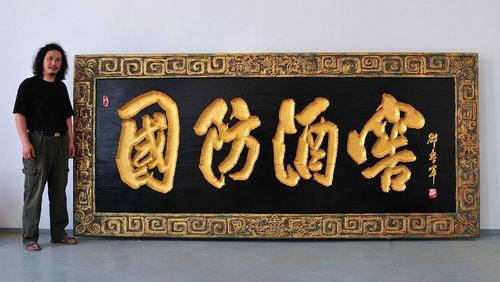 國防酒窖